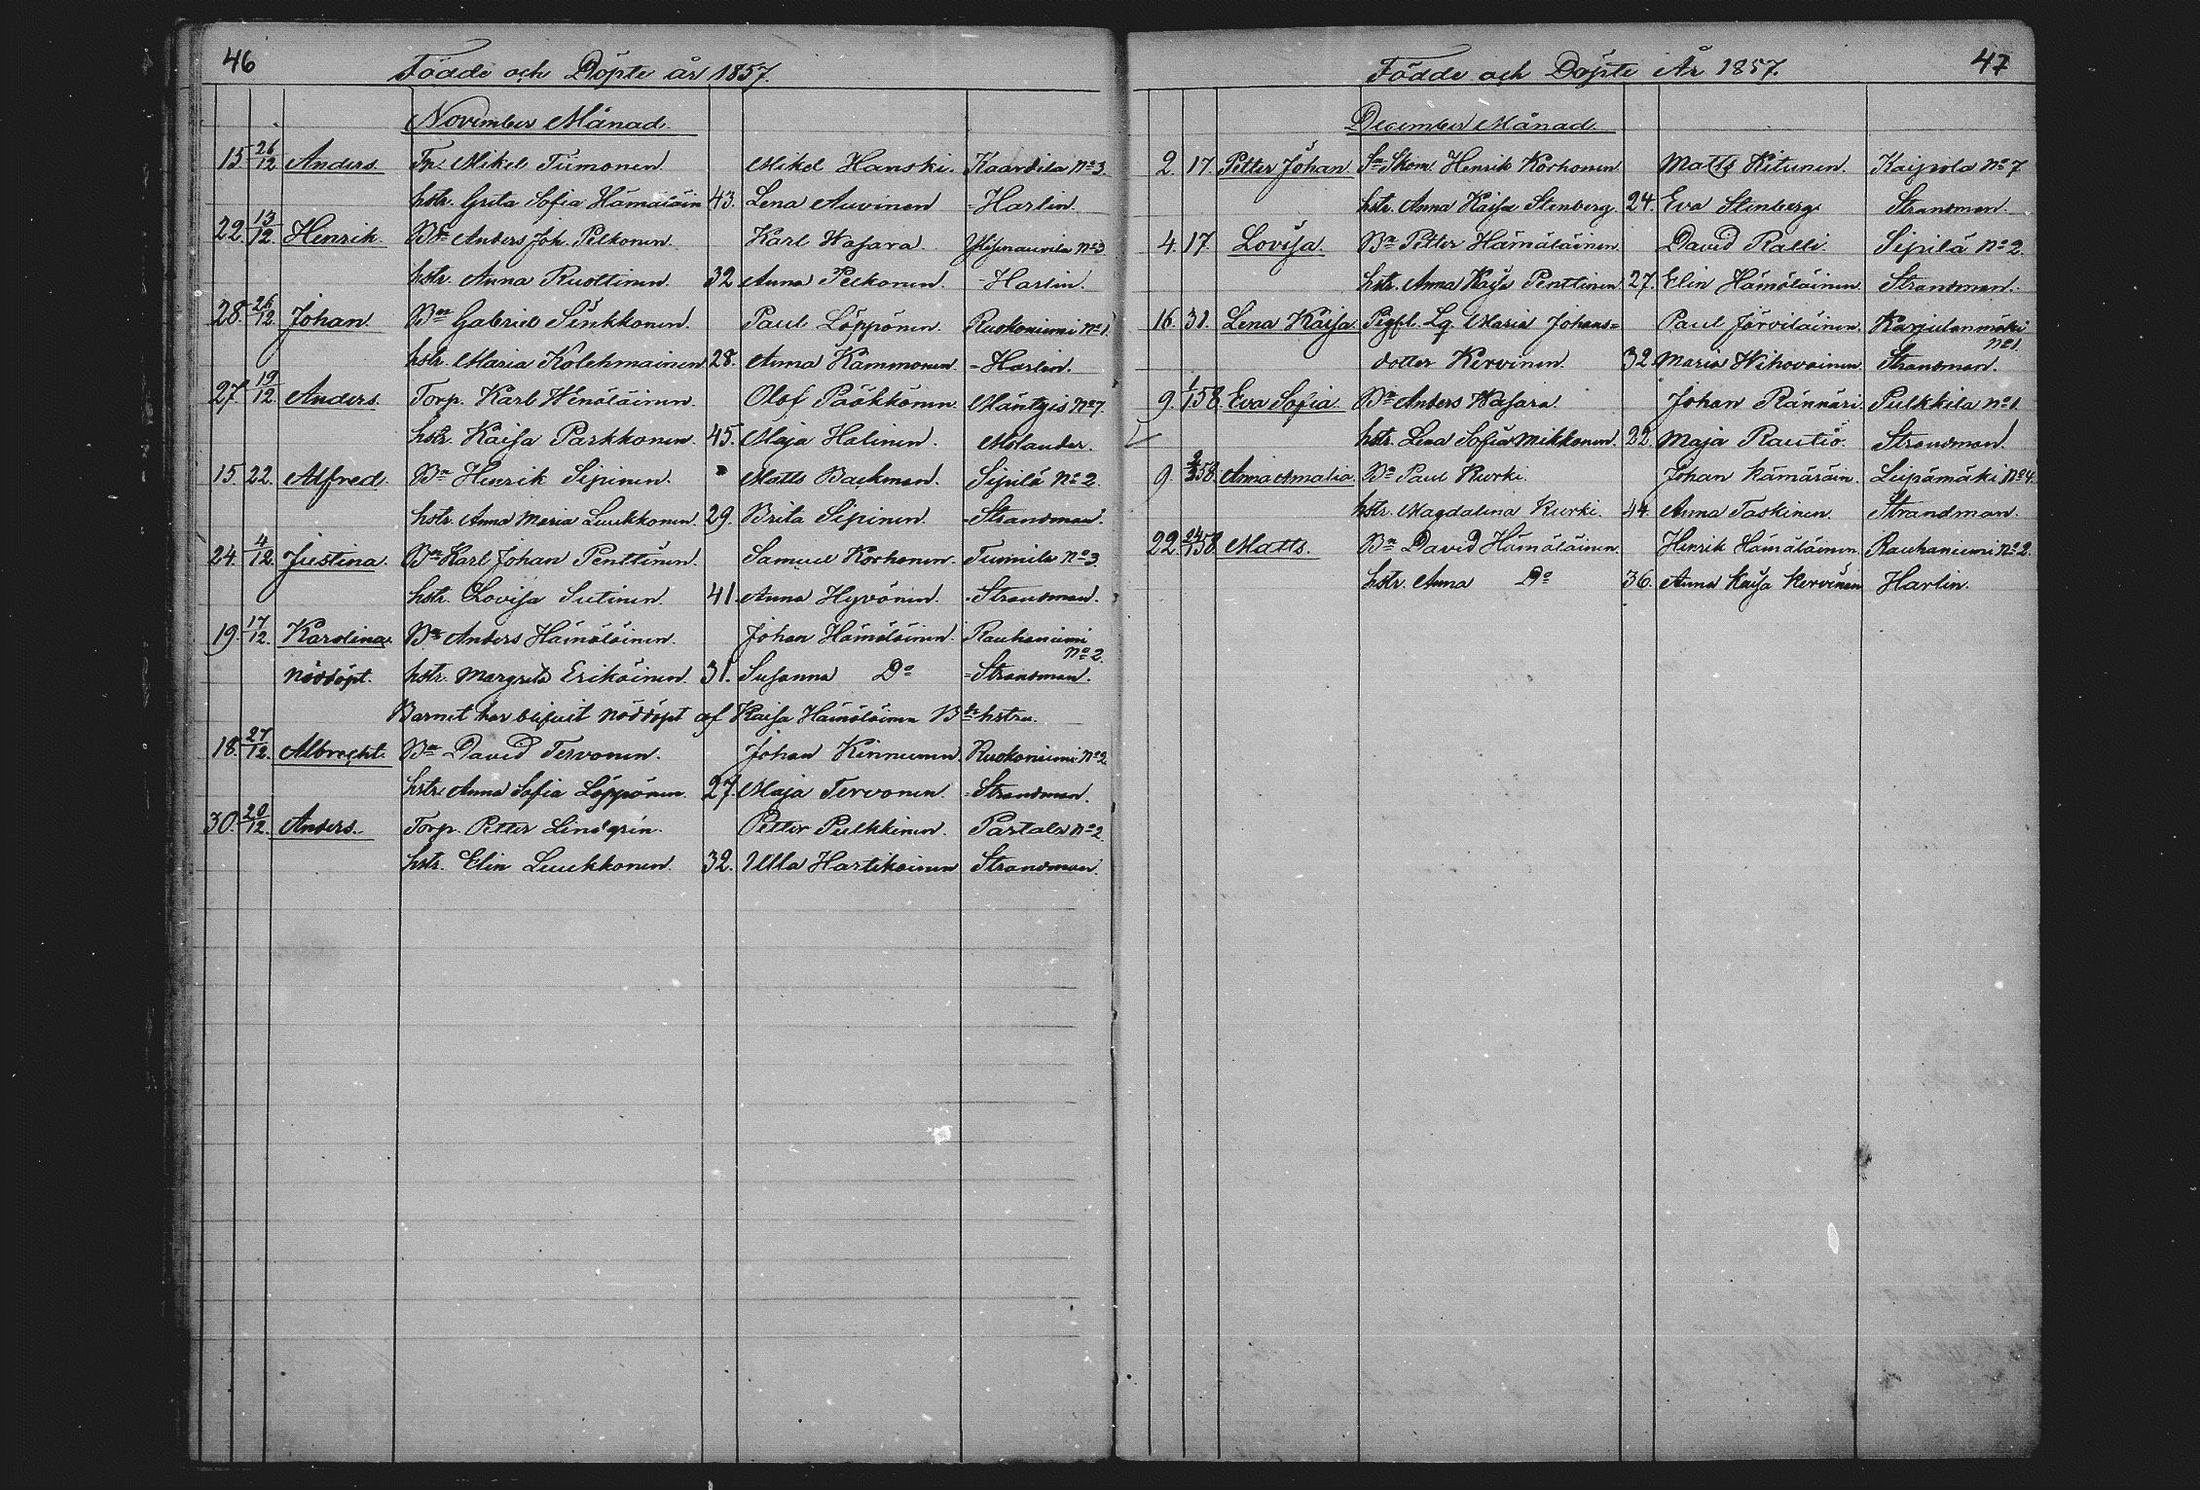 46
Födde och Döpte år 1857.
November Månad.
15 26/12 Anders. Tp. Mikel Tiimonen. Mikel Hanski. Kaavila No 3.
hstr. Greta Sofia Hämäläin 43. Lena Auvinen - Harlin.
22. 13/12. Henrik. Bn Anders Joh. Pelkonen. Karl Wasara. No 3
hstr. Anna Ruottinen. 32 Anna Pelkonen. - Harlin.
28. 26/12 Johan. Bn Gabriel Sinkkonen. Paul Löppönen. Ruokoniemi No 1.
hstr. Maria Kolehmainen 28. Anna Kämmonen - Harlin.
27. 19/12. Anders. Torp. Karl Wenäläinen. Olof Pääkkönen. Mäntyis No 7.
hstr. Kaisa Parkkonen. 45. Maja Halinen. Molander.
15. 22. Alfred. Bn Henrik Sipinen. Matts Backman. Sipilä No 2.
hstr. Anna Maria Luukkonen. 29. Brita Sipinen. - Strandman.
24. 4/12. Justina. Bn Karl Johan Penttinen. Samuel Korhonen. No 3.
hstr. Lovisa Sutinen. 41. Anna Hyvönen. - Strandman.
19. 17/12. Karolina. Bn Anders Hämäläinen. Johan Hämäläinen. Rauhaniemi
No 2.
Nöddöpt. hstr. Margreta Erikäinen. 31. Susanna Do - Strandman.
Barnet har blifvit nöddöpt af Kaisa Hämäläinen Bde hstru.
18. 27/12. Albrecht. Bn David Tervonen. Johan Kinnunen. Ruokoniemi No 2.
hstr. Anna Sofia Löppönen. 27. Maja Tervonen. - Strandman.
30. 20/12. Anders. Torp. Petter Lindgrén. Petter Pulkkinen. Partala No 2
hstr. Elin Luukkonen. 32. Ulla Hartikainen Strandman.
47
Födde och Döpte År 1857.
December Månad.
2. 17. Petter Johan. Sn Skom. Henrik Korhonen Matts Kitunen. Kaipola No 7
hstr. Anna Kaisa Stenberg. 24. Eva Stenberg Strandman.
4. 17. Lovisa. Bn Petter Hämäläinen. David Ralli. Sipilä No 2.
hstr. Anna Kaisa Penttinen 27. Elin Hämäläinen. Strandman.
16. 31. Lena Kaisa. Pigfl. Lq. Maria Johans= Paul Järviläinen. Karjulanmäki
No 1.
dotter Kervinen. 32. Maria Wihavainen. Strandman.
9. 1/1 58. Eva Sofia. Bn Anders Wasara. Johan Rännäri. Pulkkila No 1.
hstr. Lena Sofia Mikkonen. 22. Maja Rautio. Strandman.
9. 58. Anna Amalia. Bn Paul Kurki. Johan Kämäräin. Leipämäki No 4.
hstr. Magdalena Kurki. 44. Anna Taskinen. Strandman.
22. 24/1 58. Matts. Bn David Hämäläinen. Henrik Hämäläinen. Rauhaniemi No 2.
hstr. Anna Do 36. Anna Kaisa Kervinen Harlin.